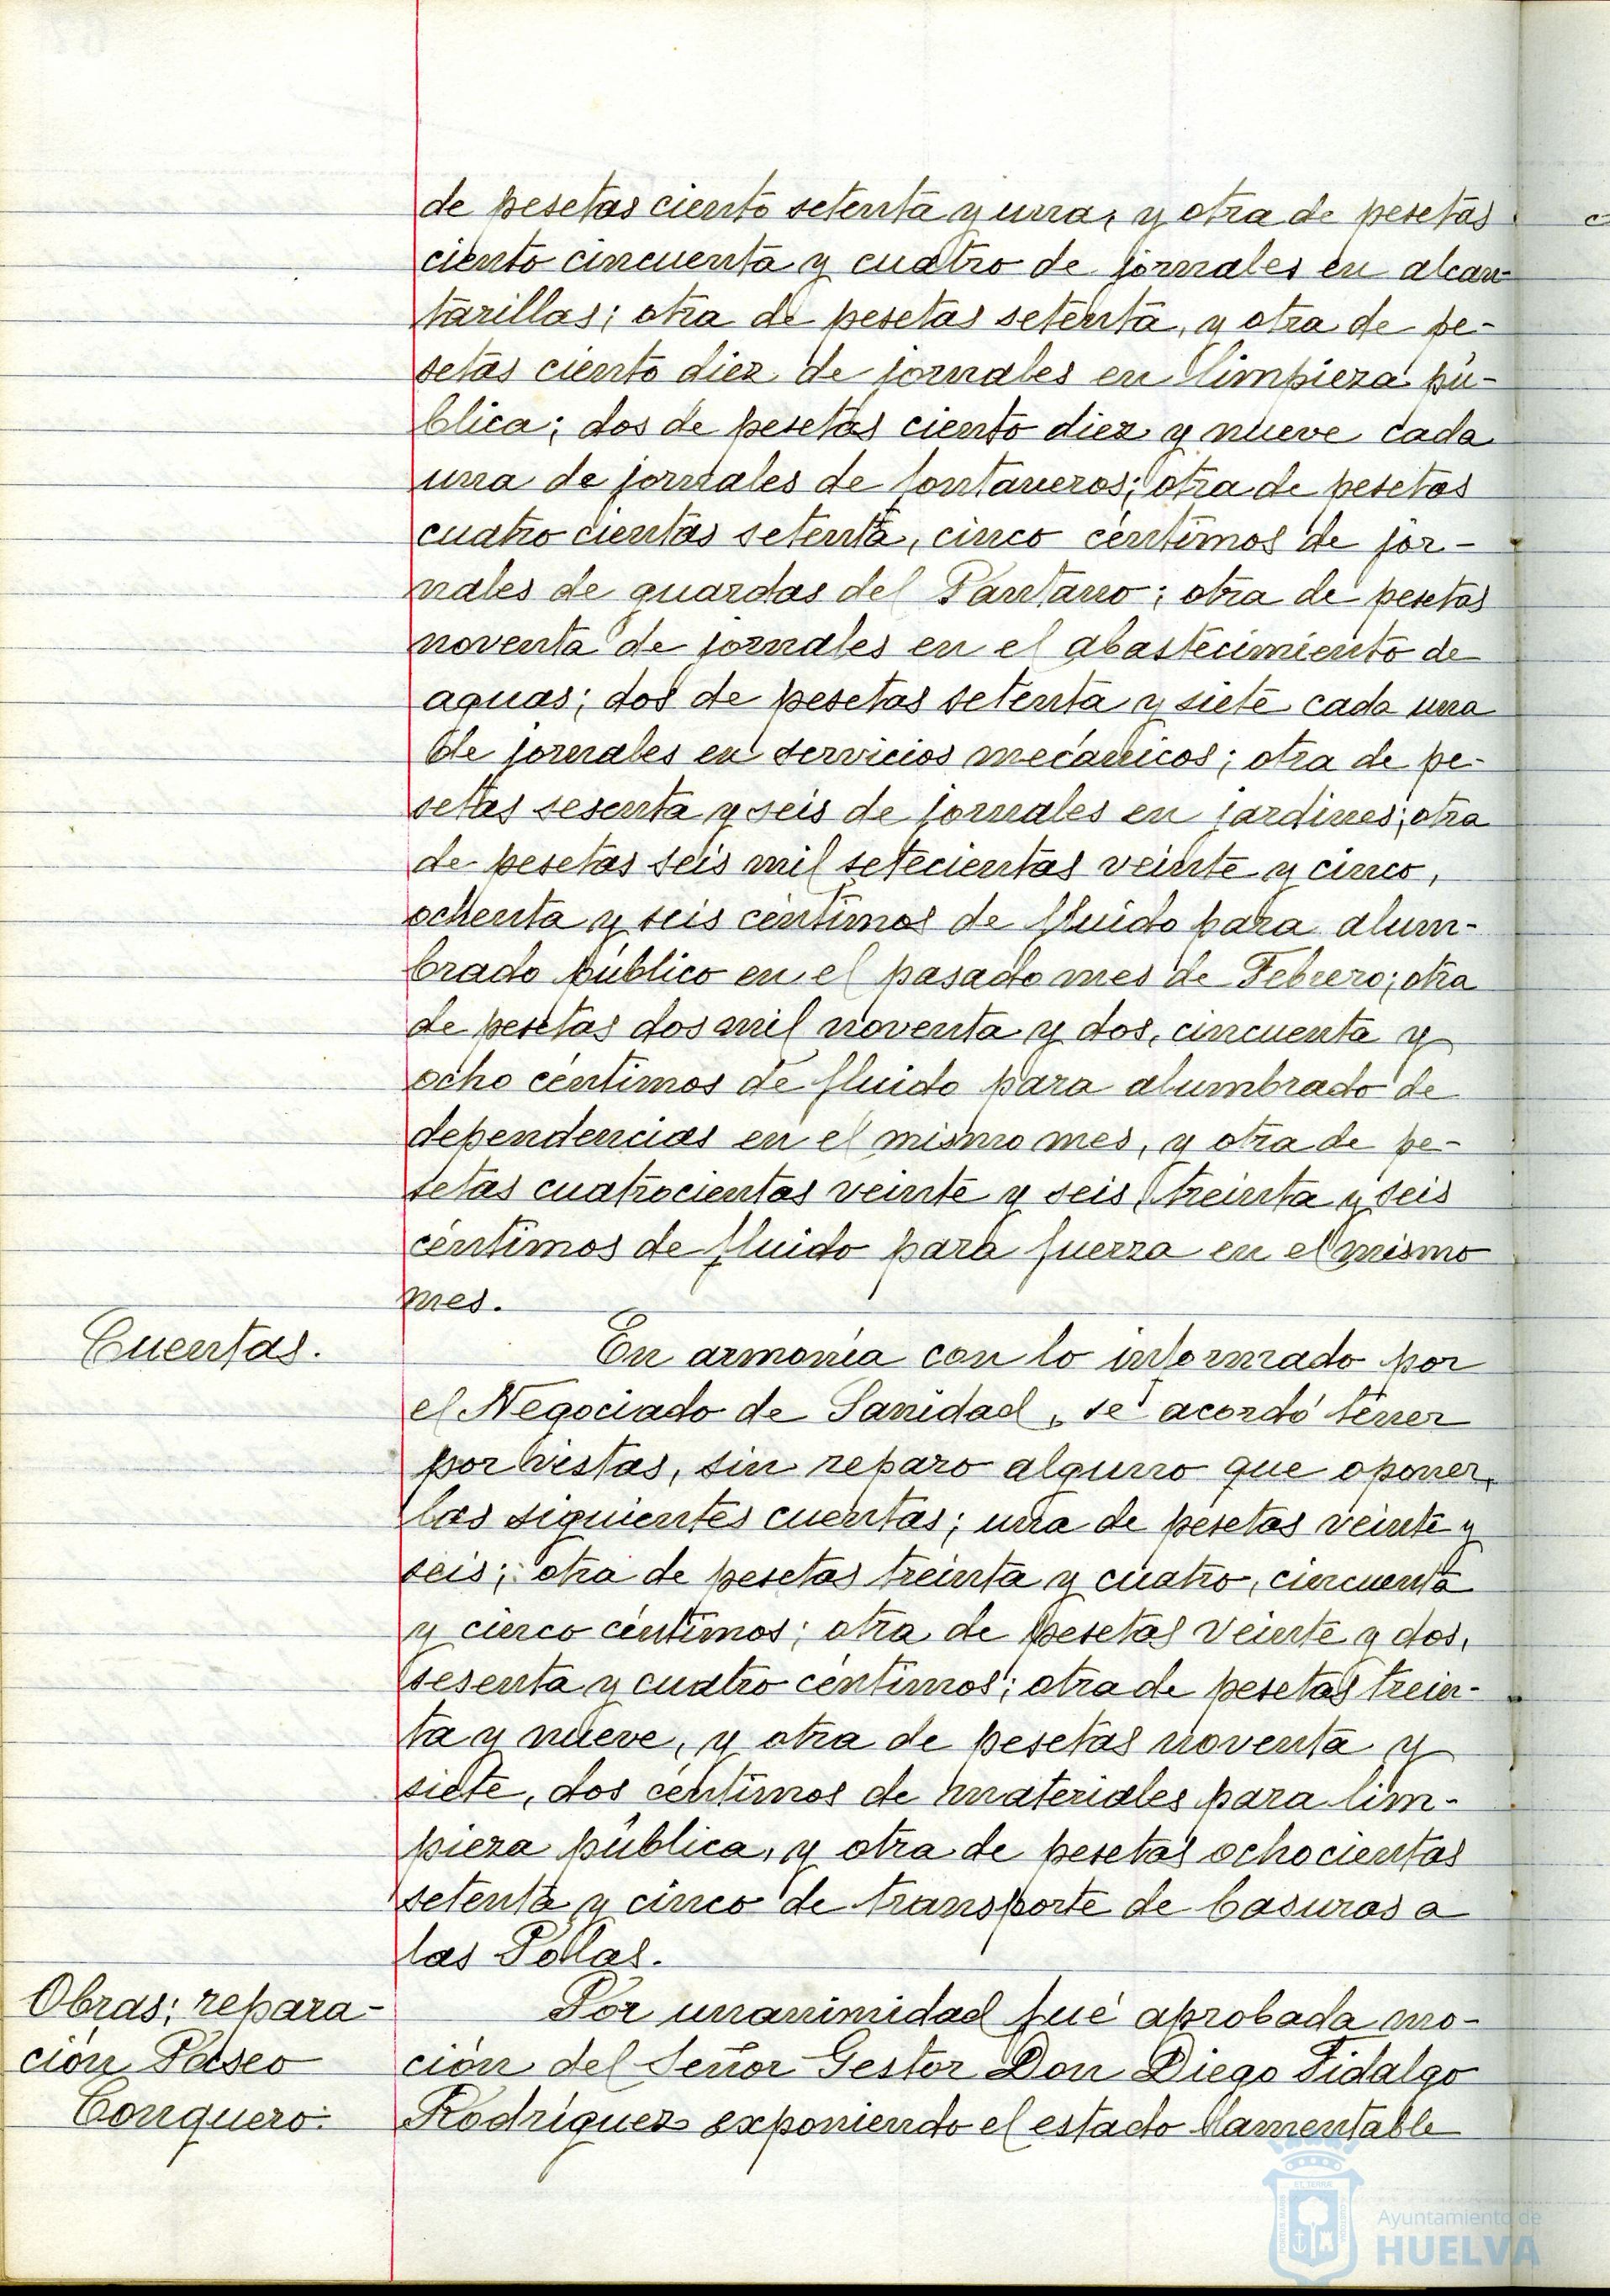 de pesetas ciento setenta y una, y otra de pesetas
ciento cincuenta y cuatro de jornales en alcan-
tarillas; otra de pesetas setenta, y otra de pe-
setas ciento diez de jornales en limpieza pú-
blica; dos de pesetas ciento diez y nueve cada
una de jornales de fontaneros; otra de pesetas
cuatrocientas setenta, cinco céntimos de jor-
nales de guardas del Pantano; otra de pesetas
noventa de jornales en el abastecimiento de
aguas; dos de pesetas setenta y siete cada una
de jornales en servicios mecánicos; otra de pe-
setas sesenta y seis de jornales en jardines; otra
de pesetas seis mil setecientas veinte y cinco,
ochenta y seis céntimos de fluido para alum-
brado público en el pasado mes de Febrero; otra
de pesetas dos mil noventa y dos, cincuenta y
ocho céntimos de fluido para alumbrado de
dependencias en el mismo mes, y otra de pe-
setas cuatrocientas veinte y seis, treinta y seis
céntimos de fluido para fuerza en el mismo
mes.
Cuentas.
En armonía con lo informado por
el Negociado de Sanidad, se acordó tener
por vistas, sin reparo alguno que oponer,
las siguientes cuentas; una de pesetas veinte y
seis; otra de pesetas treinta y cuatro, cincuenta
y cinco céntimos; otra de pesetas veinte y dos,
sesenta y cuatro céntimos; otra de pesetas trein-
ta y nueve, y otra de pesetas noventa y
siete, dos céntimos de materiales para lim-
pieza pública, y otra de pesetas ochocientas
setenta y cinco de transporte de basuras a
las Pollas.
Obras; repara-
ción Paseo
Conquero.
Por unanimidad fué aprobada mo-
ción del Señor Gestor Don Diego Fidalgo
Rodríguez exponiendo el estado lamentable
Ayuntamiento de
HUELVA